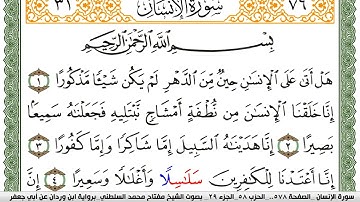 ٣١ سُورَةُ الإِنسَانِ ٧٦
بِسْمِ اللَّهِ الرَّحْمَٰنِ الرَّحِيمِ
هَلْ أَتَىٰ عَلَى الْإِنسَانِ حِينٌ مِّنَ الدَّهْرِ لَمْ يَكُن شَيْئًا مَّذْكُورًا ١
إِنَّا خَلَقْنَا الْإِنسَانَ مِن نُّطْفَةٍ أَمْشَاجٍ نَّبْتَلِيهِ فَجَعَلْنَاهُ سَمِيعًا
بَصِيرًا ٢ إِنَّا هَدَيْنَاهُ السَّبِيلَ إِمَّا شَاكِرًا وَإِمَّا كَفُورًا ٣
إِنَّا أَعْتَدْنَا لِلْكَافِرِينَ سَلَاسِلًا وَأَغْلَالًا وَسَعِيرًا ٤ إِنَّ
سورة الإنسان الصفحة ٥٧٨.. الحزب ٥٨ .الجزء ٢٩ بصوت الشيخ مفتاح محمد السلطني برواية ابن وردان عن أبي جعفر